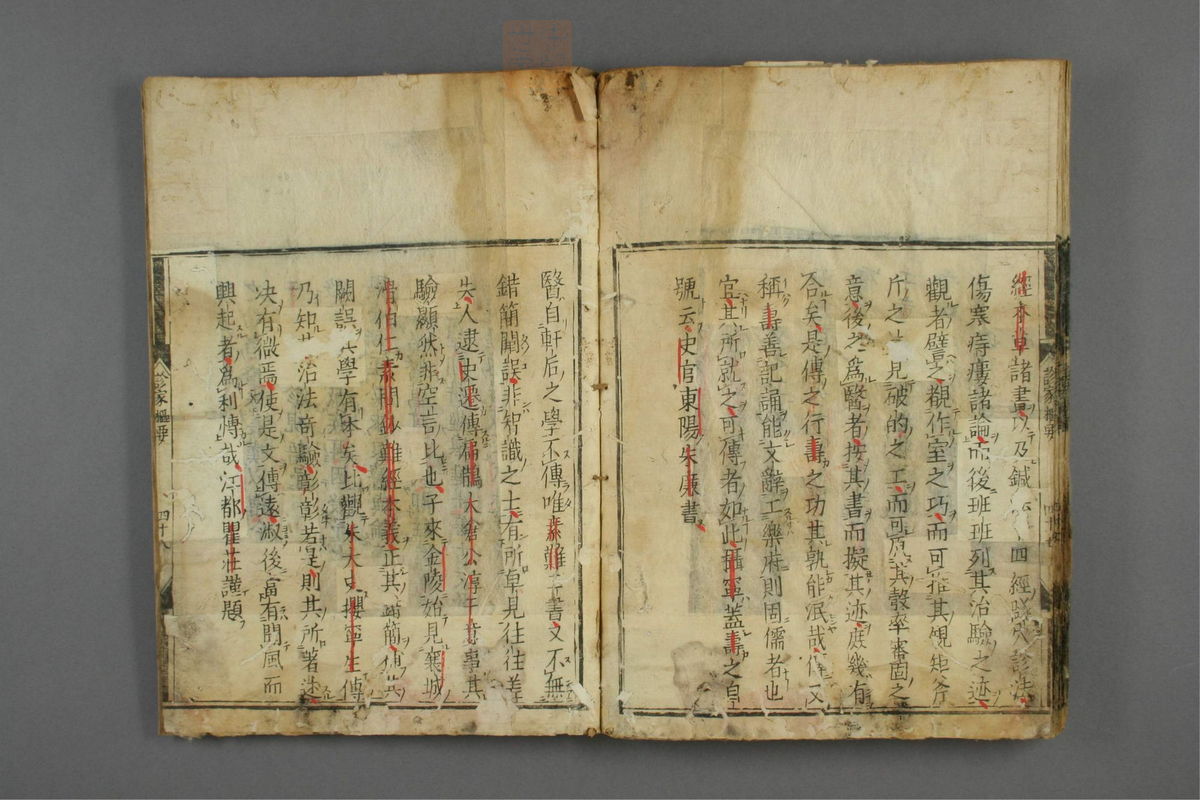 經本草諸書以及鍼 四經
傷寒痔瘻諸論而後班班列其治驗之迹
觀者譬之觀作室之巧而可
斤之 見破的之工而可 其彀率審固之
意後之爲醫者按其書而擬其迹庶幾有
合矣是傳之行壽之功其孰能泯哉傳又
稱壽善記誦能文辭工樂府則固儒者也
官其所就之可傳者如此攖寧蓋壽之自
號云史官東陽朱廉書
醫自軒后之學不傳唯素難 書又不無
錯簡闕誤非智識之士有所卓見往往差
失人逮史遷傳扁鵲太倉公淳于意事其
驗顯然非空言比也予來金陵始見襄城
滑伯仁素問鈔難經本義正其錯簡
闕誤 學有本矣比觀朱太史攖寧生傳
乃知其治法奇驗彰彰若是則其所著述
决有徵焉使是文傳遠淑後當有聞風而
興起者爲利博哉江都瞿莊謹題
診家樞要
四十八